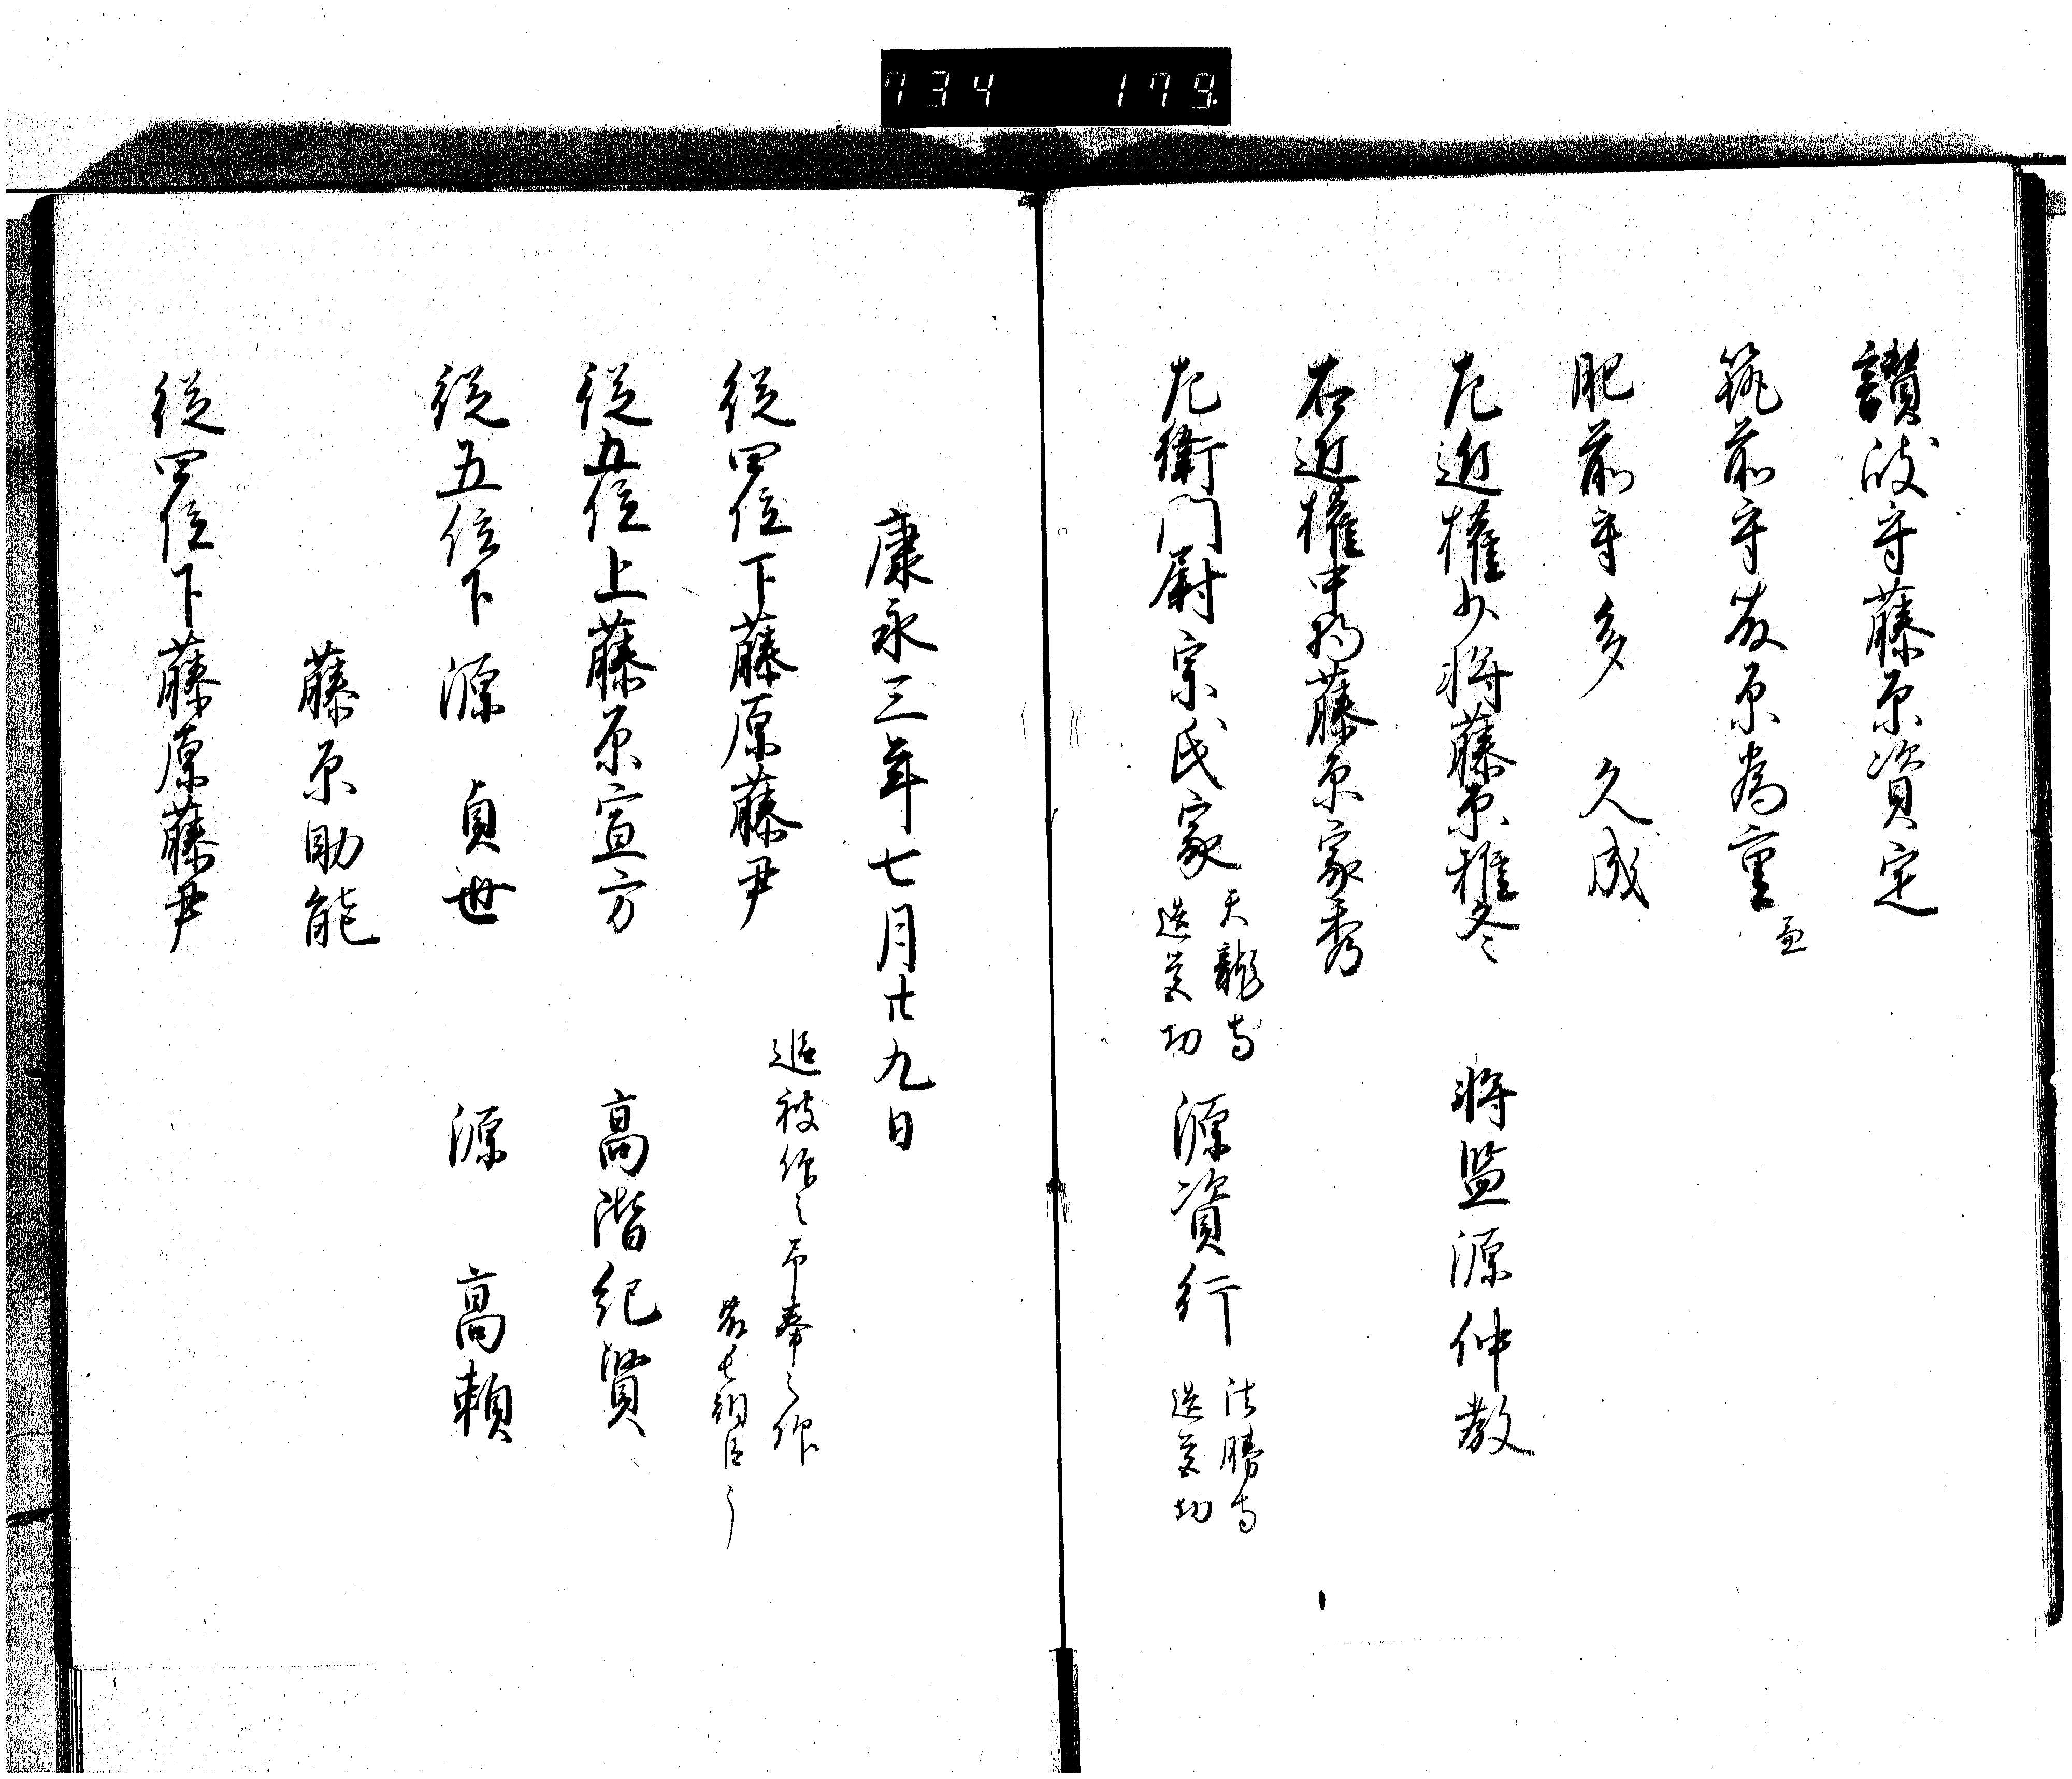 734 179
讃岐守藤原資定
筑前守藤原為重
肥前守多久成
左近権少将藤原雅冬 将監源仲教
右近権中将藤原家秀
左衛門尉宗氏家 天龍寺
造営功
源資行 法勝寺
造営功
康永三年七月廿九日
従四位下藤原藤尹 追被仰之
従五位上藤原宣方 高階紀賢
従五位下源貞世 源高頼
藤原助能
従四位下藤原藤尹